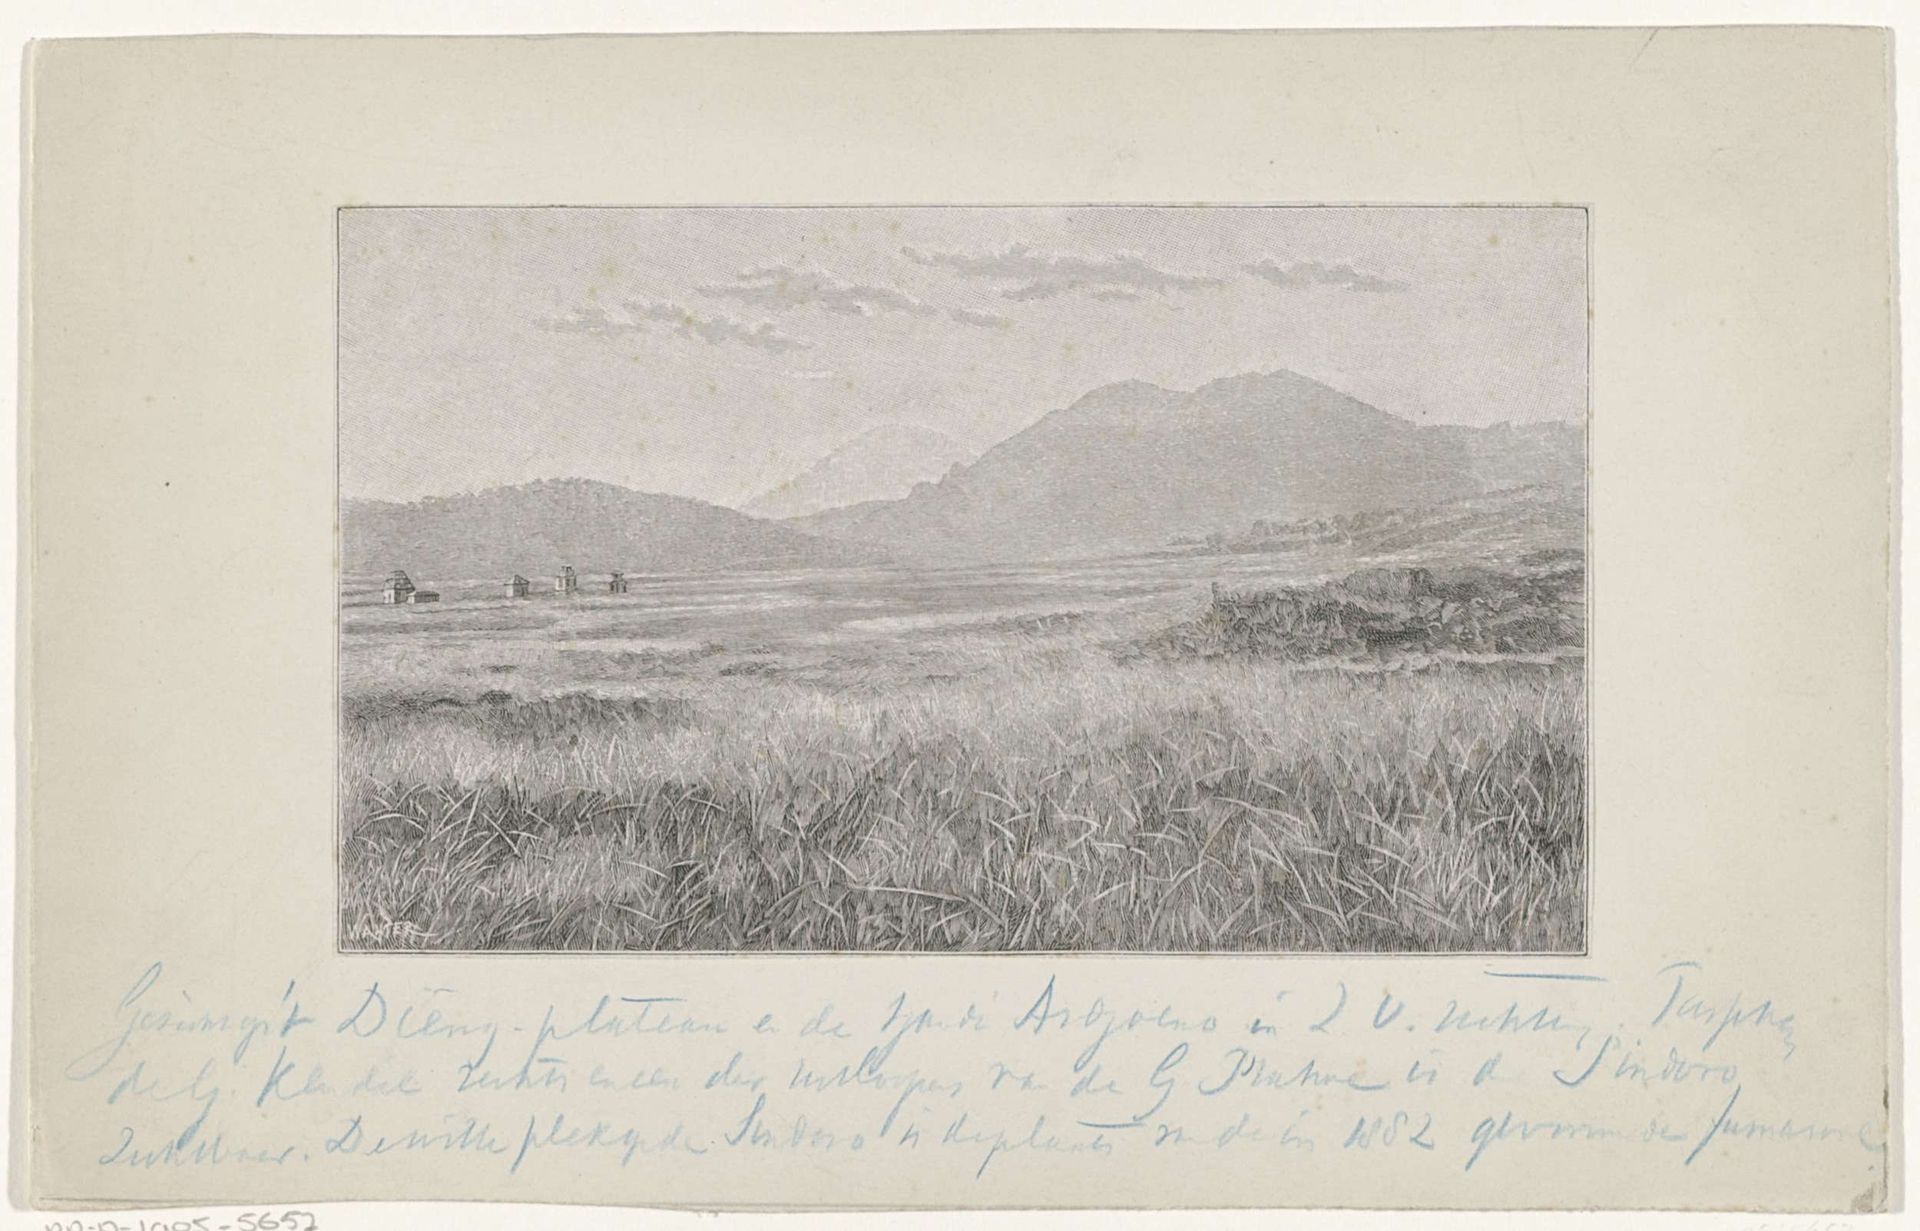 WALTER
Gezicht op 't Diëng-plateau en de tjandi Ardjoeno in Z.O. richting. Tusschen
de G. Kendil rechts en een der uitloopers van de G Prahoe is de Sindoro
zichtbaar. De witte plek op de Sindoro is de plaats van de in 1882 gevormde fumarole
RP-P-1905-5657